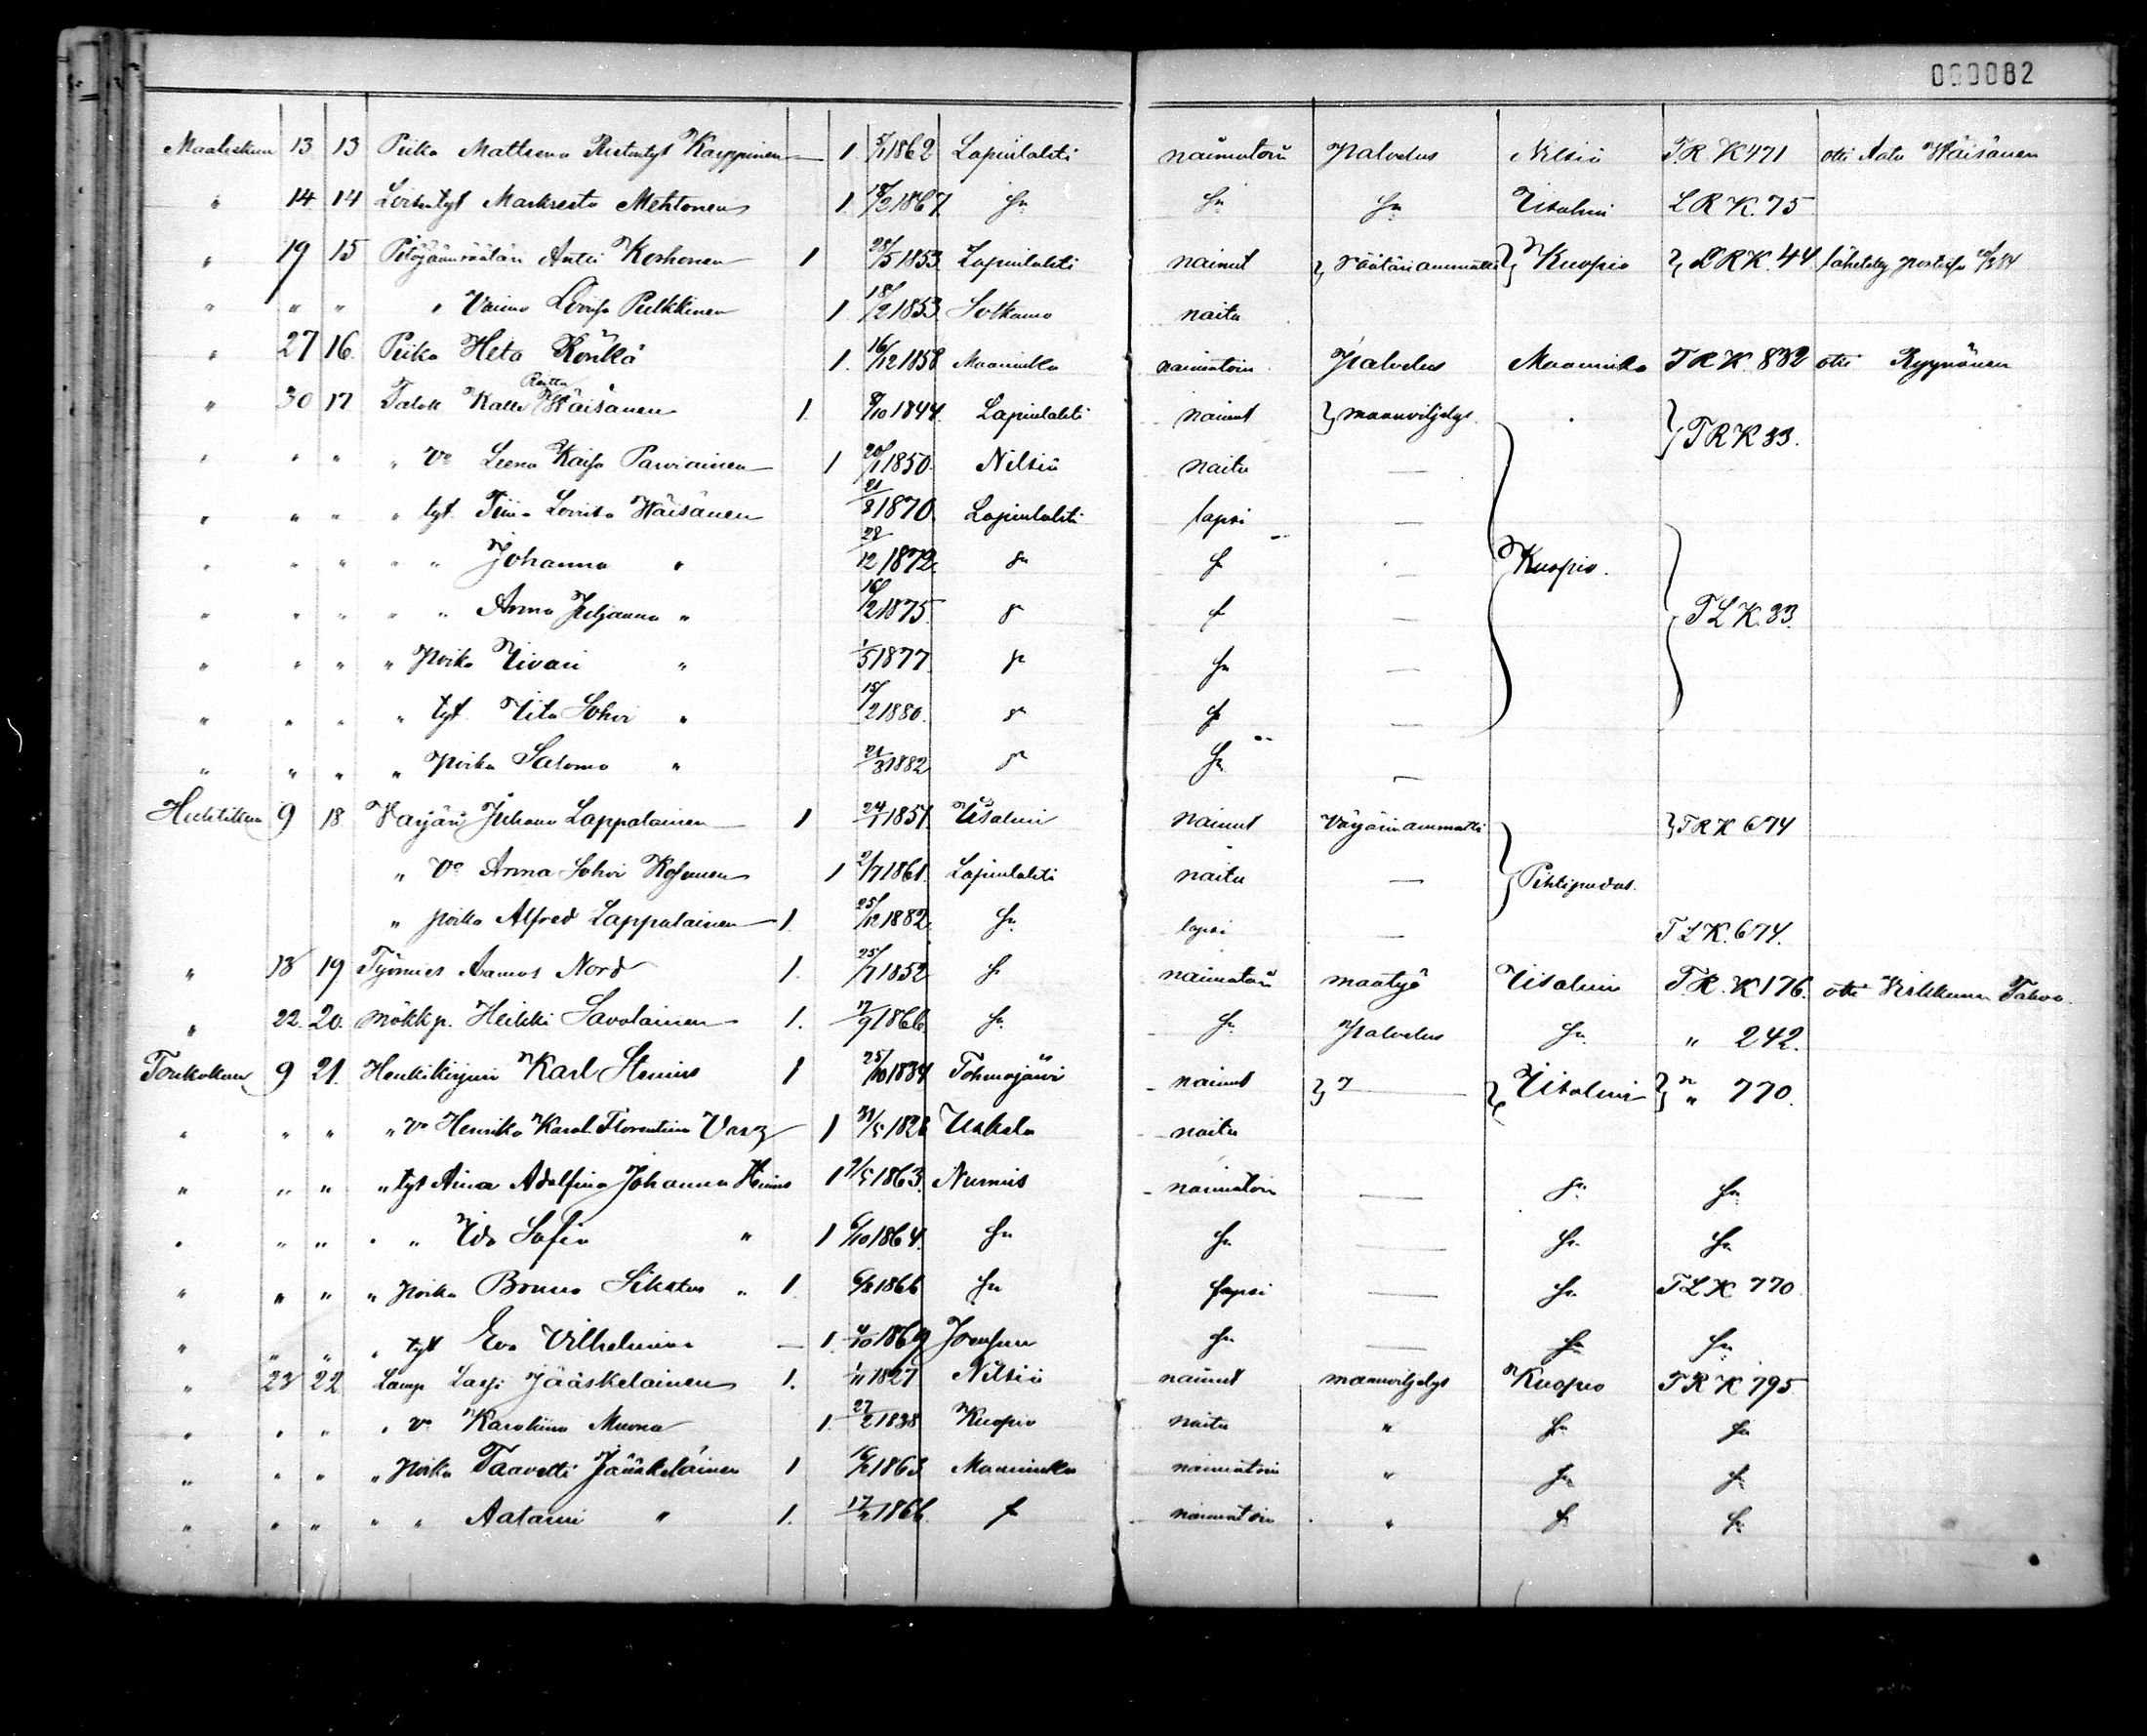 000082
Maaliskuu 13 13 Piika Mattrena Ristintyt Karppinen 1 5/1 1862 Lapinlahti naimatoin Palvelus Nilsiä T.R.K 471 otti Aatu Wäisänen
" 14 14 Loistintyt Markreeta Mehtonen 1. 18/2 1867 Sn Sn Sn Iisalmi L R K. 75
" 19 15 Pitäjäänräätäri Antti Korhonen 1 28/5 1853 Lapinlahti nainut räätäri ammatti Kuopio L R K. 44 lähetetty postissa 20/3 84
" " " " Vaimo Loviisa Pulkkinen 1 18/2 1853 Sotkamo naitu
" 27 16. Piika Heta Könkä 1. 16/12 1858 Maaninka naimatoin Palvelus Maaninka T R K 832 otti Ryynänen
" 30 17 Talok Kalle Reitta Wäisänen 1. 9/10 1844. Lapinlahti nainut maanviljelys T R K 33.
" " " " Vo Leena Kaisa Parviainen 1 20/1 1850. Nilsiä naitu —
" " " " tyt. Tiina Lovisa Wäisänen 21/8 1870. Lapinlahti lapsi —
" " " " " Johanna " 28/12 1872. Sn Sn — Kuopio.
" " " " " Anna Juljaana " 16/2 1875. Sn Sn — T L K. 33.
" " " " Poika Iivari " 1/5 1877 Sn Sn —
" " " " tyt. Iita Sohvi " 15/2 1880. Sn Sn —
" " " " Poika Salomo " 21/3 1882 Sn Sn —
Huhtikuu 9 18 Värjäri Juhana Lappalainen 1 24/1 1851. Iisalmi nainut Värjärin ammatti T R K 674
" Vo Anna Sohvi Rosunen 1 2/7 1861. Lapinlahti naitu — Pihtipudas.
" poika Alfred Lappalainen 1. 25/12 1882. Sn lapsi — T L K. 674.
" 18 19 Työmies Aamos Nord 1. 25/7 1852 Sn naimatoin maatyö Iisalmi T.R.K 176. otti Tahvo.
" 22. 20. mökkp. Heikki Savolainen 1. 17/9 1866 Sn Sn Palvelus Sn " 242.
Toukokuu 9 21. Henkikirjuri Karl Stenius 1 25/10 1834 Tohmajärvi nainut " — Iisalmi " 770.
" " " " Vo Henrika Karol. Florentina 1 1826 Uskela naitu
" " " " tyt Aina Adolfina Johanna 1 9/5 1863. Nurmis naimatoin — Sn Sn
" " " " " Ida Sofia " 1 6/10 1864. Sn Sn — Sn Sn
" " " " poika Bruno Sikstus " 1. 6/8 1866 Sn lapsi — Sn T L K 770
" " " " tyt Eva Vilhelmina — 1. 4/10 1869 Joensuu Sn — Sn Sn
" 23 22 Lamp Lassi Jääskeläinen 1. 1/11 1827 Nilsiä nainut maanviljelys Kuopio T R K 795
" " " " Vo Karoliina Muona 1. 27/2 1838 Kuopio naitu " Sn Sn
" " " " Poika Taavetti Jääskeläinen 1 16/2 1863 Maaninka naimatoin " Sn Sn
" " " " " Aatami " 1. 17/2 1866. Sn naimatoin " Sn Sn